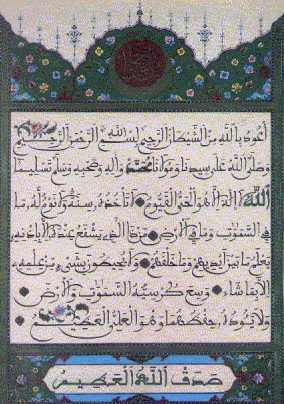 أعوذ بالله من الشيطان الرجيم بسم الله الرحمن الرحيم
وصلى الله على سيدنا ومولانا محمد وآله وصحبه وسلم تسليما
الله لا إله إلا هو الحي القيوم لا تأخذه سنة ولا نوم له ما
في السموات وما في الأرض من ذا الذي يشفع عنده إلا بإذنه
يعلم ما بين أيديهم وما خلفهم ولا يحيطون بشيء من علمه
إلا بما شاء وسع كرسيه السموات والأرض
ولا يؤده حفظهما وهو العلي العظيم
صدق الله العظيم